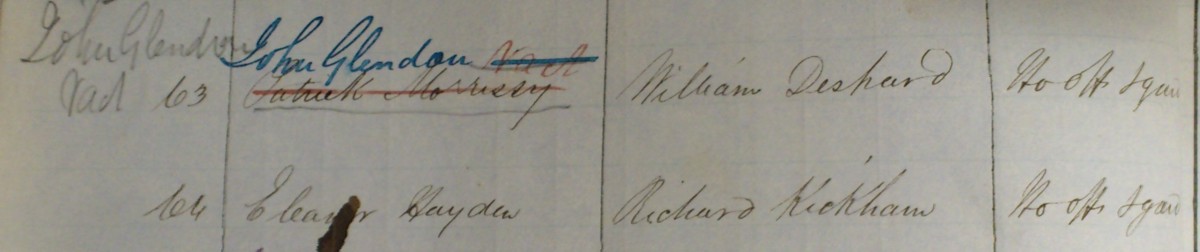 John Glendon John Glendon Vact
Vact 63 Patrick Morrissy William Deshard Ho off & gard
64 Eleanor Hayden Richard Kickham Ho off & gard